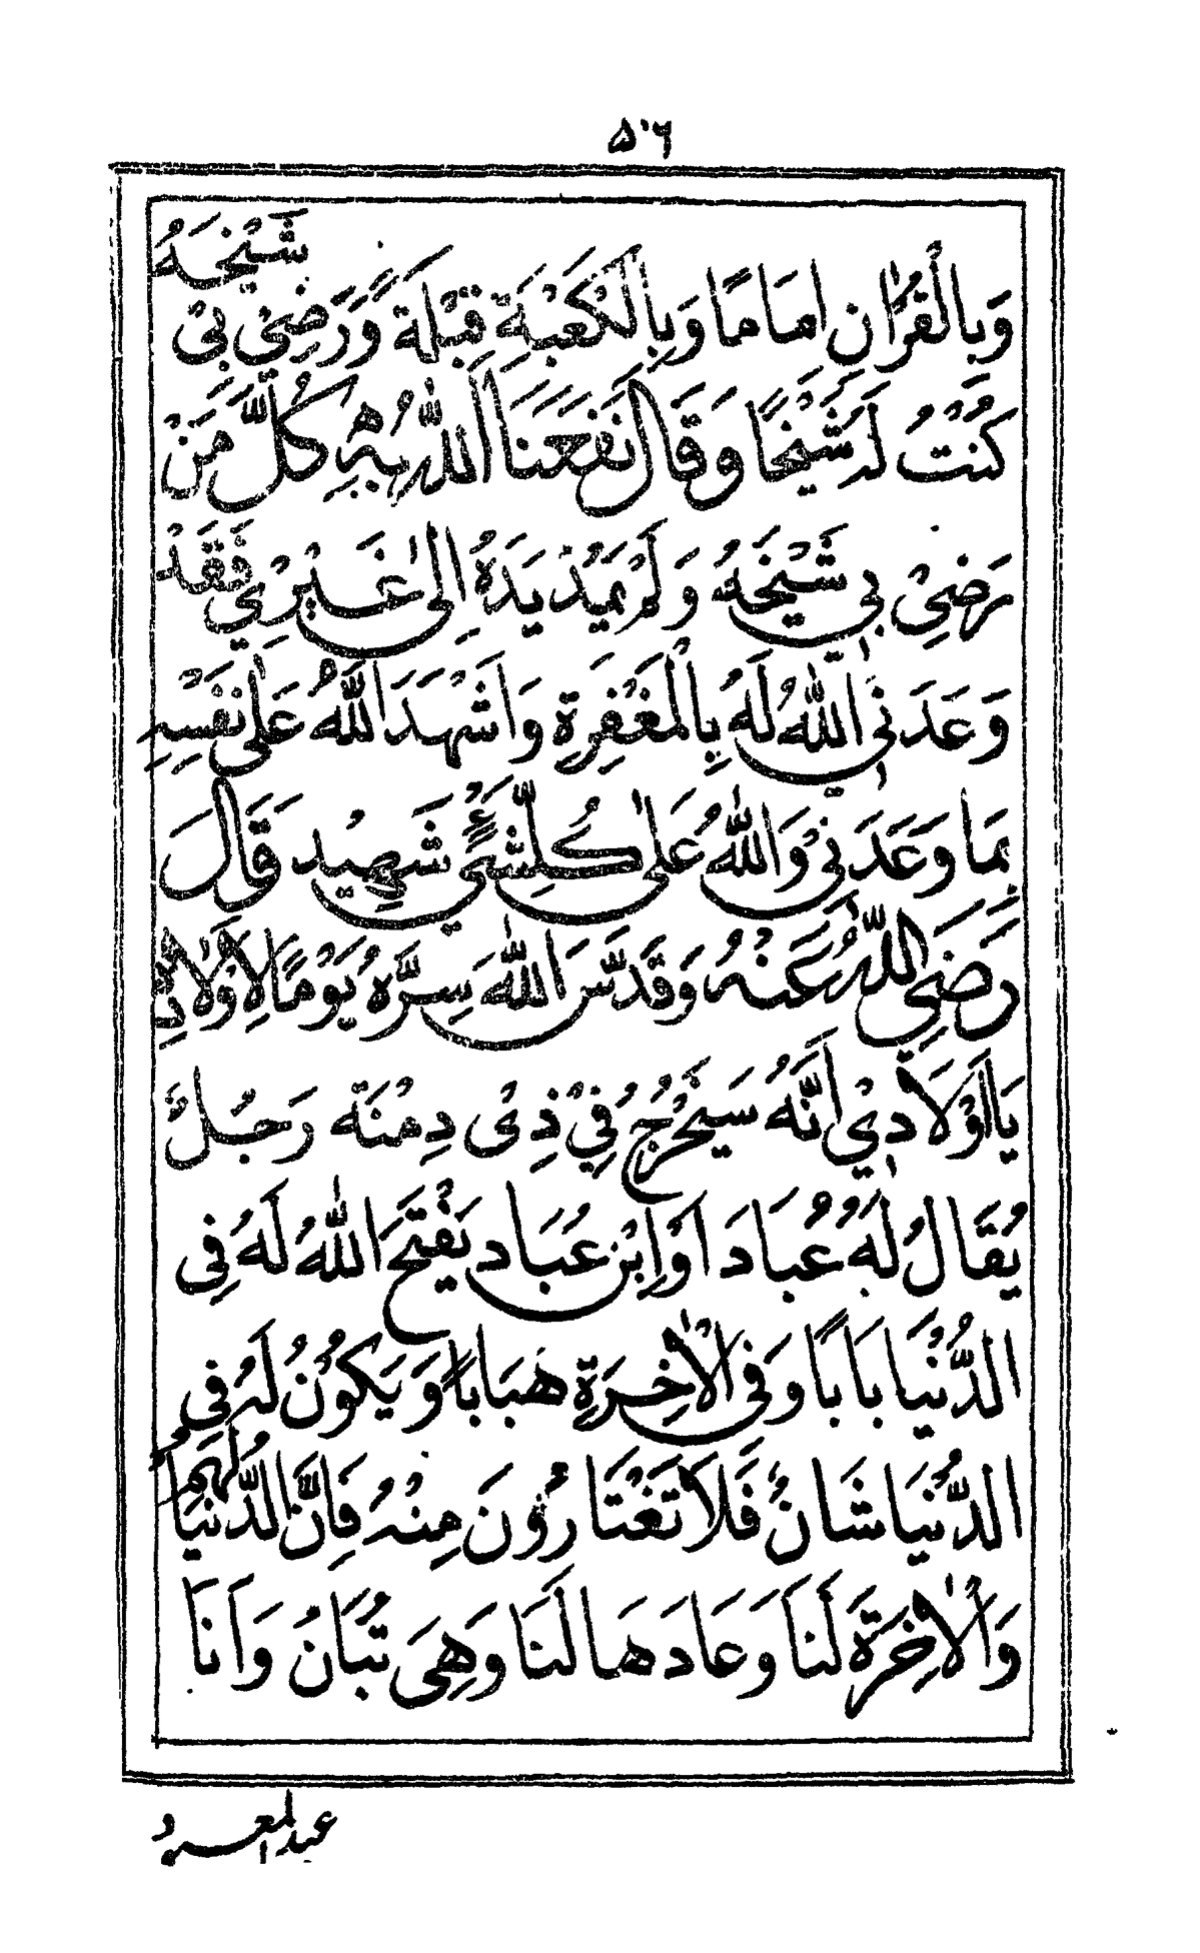 ۵۰۶
وَبِالْقُرْاٰنِ اِمَامًا وَبِالْكَعْبَةِ قِبْلَةً وَرَضِيْ بِيْ شَيْخَهُ
كُنْتُ لَهُ شَيْخًا وَقَالَ نَفَعَنَا اللّٰهُ بِهٖ كُلُّ مَنْ
رَضِيْ بِي شَيْخَهُ وَلَمْ يَمُدْ يَدَهُ اِلٰى غَيْرِيْ فَقَدْ
وَعَدَنِي اللّٰهُ لَهُ بِالْمَغْفِرَةِ وَاَشْهَدَ اللّٰهُ عَلٰى نَفْسِهِ
بِمَا وَعَدَنِيْ وَاللّٰهُ عَلٰى كُلِّ شَيْءٍ شَهِيْد قَالَ
رَضِيَ اللّٰهُ عَنْهُ وَقَدَّسَ اللّٰهُ سِرَّهُ يَوْمًا لِاَوْلَادِهٖ
يَا اَوْلَادِيْ اَنَّهُ سَيَخْرُجُ فِيْ ذِيْ دِمْنَة رَجُلٌ
يُقَالُ لَهُ عُبَادَ اَوْ اِبْن عَبَاد يَفْتَحَ اللّٰهُ لَهُ فِي
الدُّنْيَا بَابًا وَفِي الْاٰخِرَةِ هَبَابًا وَيَكُوْنُ لَهُ فِي
الدُّنْيَا شَانٌ فَلَا تَغْتَارُوْنَ مِنْهُ فَاِنَّ الدُّنْيَا لَهُمْ
وَالْاٰخِرَةَ لَنَا وَعَادَهَا لَنَا وَهِيَ تُبَانُ وَاَنَا